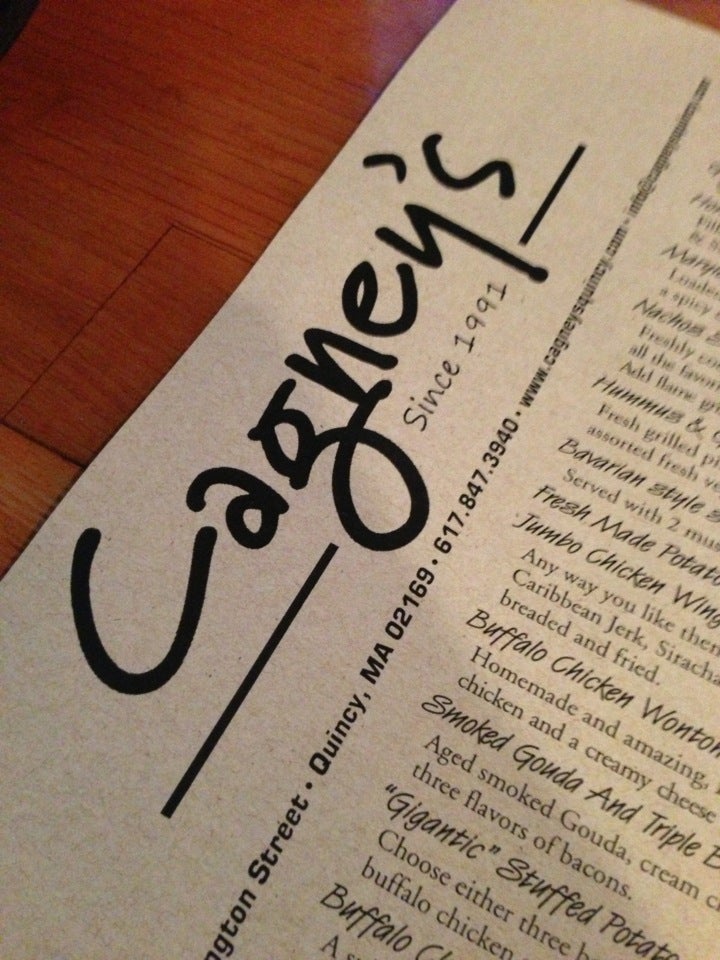 Cagney's
Since 1991
ngton Street • Quincy, MA 02169 • 617.847.3940 • www.cagneysquincy.com • info@cagneysquincy.com
Nachos
Freshly
all the
Add flame
Hummus &
Fresh grilled
assorted fresh
Bavarian style
Served with 2
Fresh Made
Jumbo Chicken
Any way you like
Caribbean Jerk,
breaded and fried.
Buffalo Chicken
Homemade and amazing,
chicken and a creamy cheese
Smoked Gouda And Triple
Aged smoked Gouda, cream
three flavors of bacons.
"Gigantic" Stuffed
Choose either three
buffalo chicken
Buffalo
A